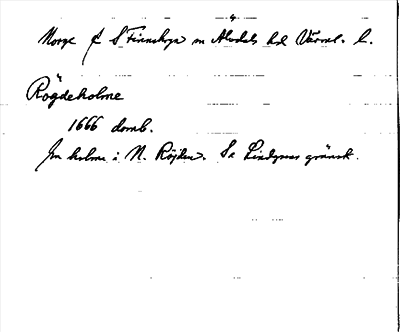 Norge f S Finnskoga sn Älvdals hd Värml. l.
Rögdeholme
1666 domb.
Jm holme i N. Röjden. Se Lindgrens gränsk.